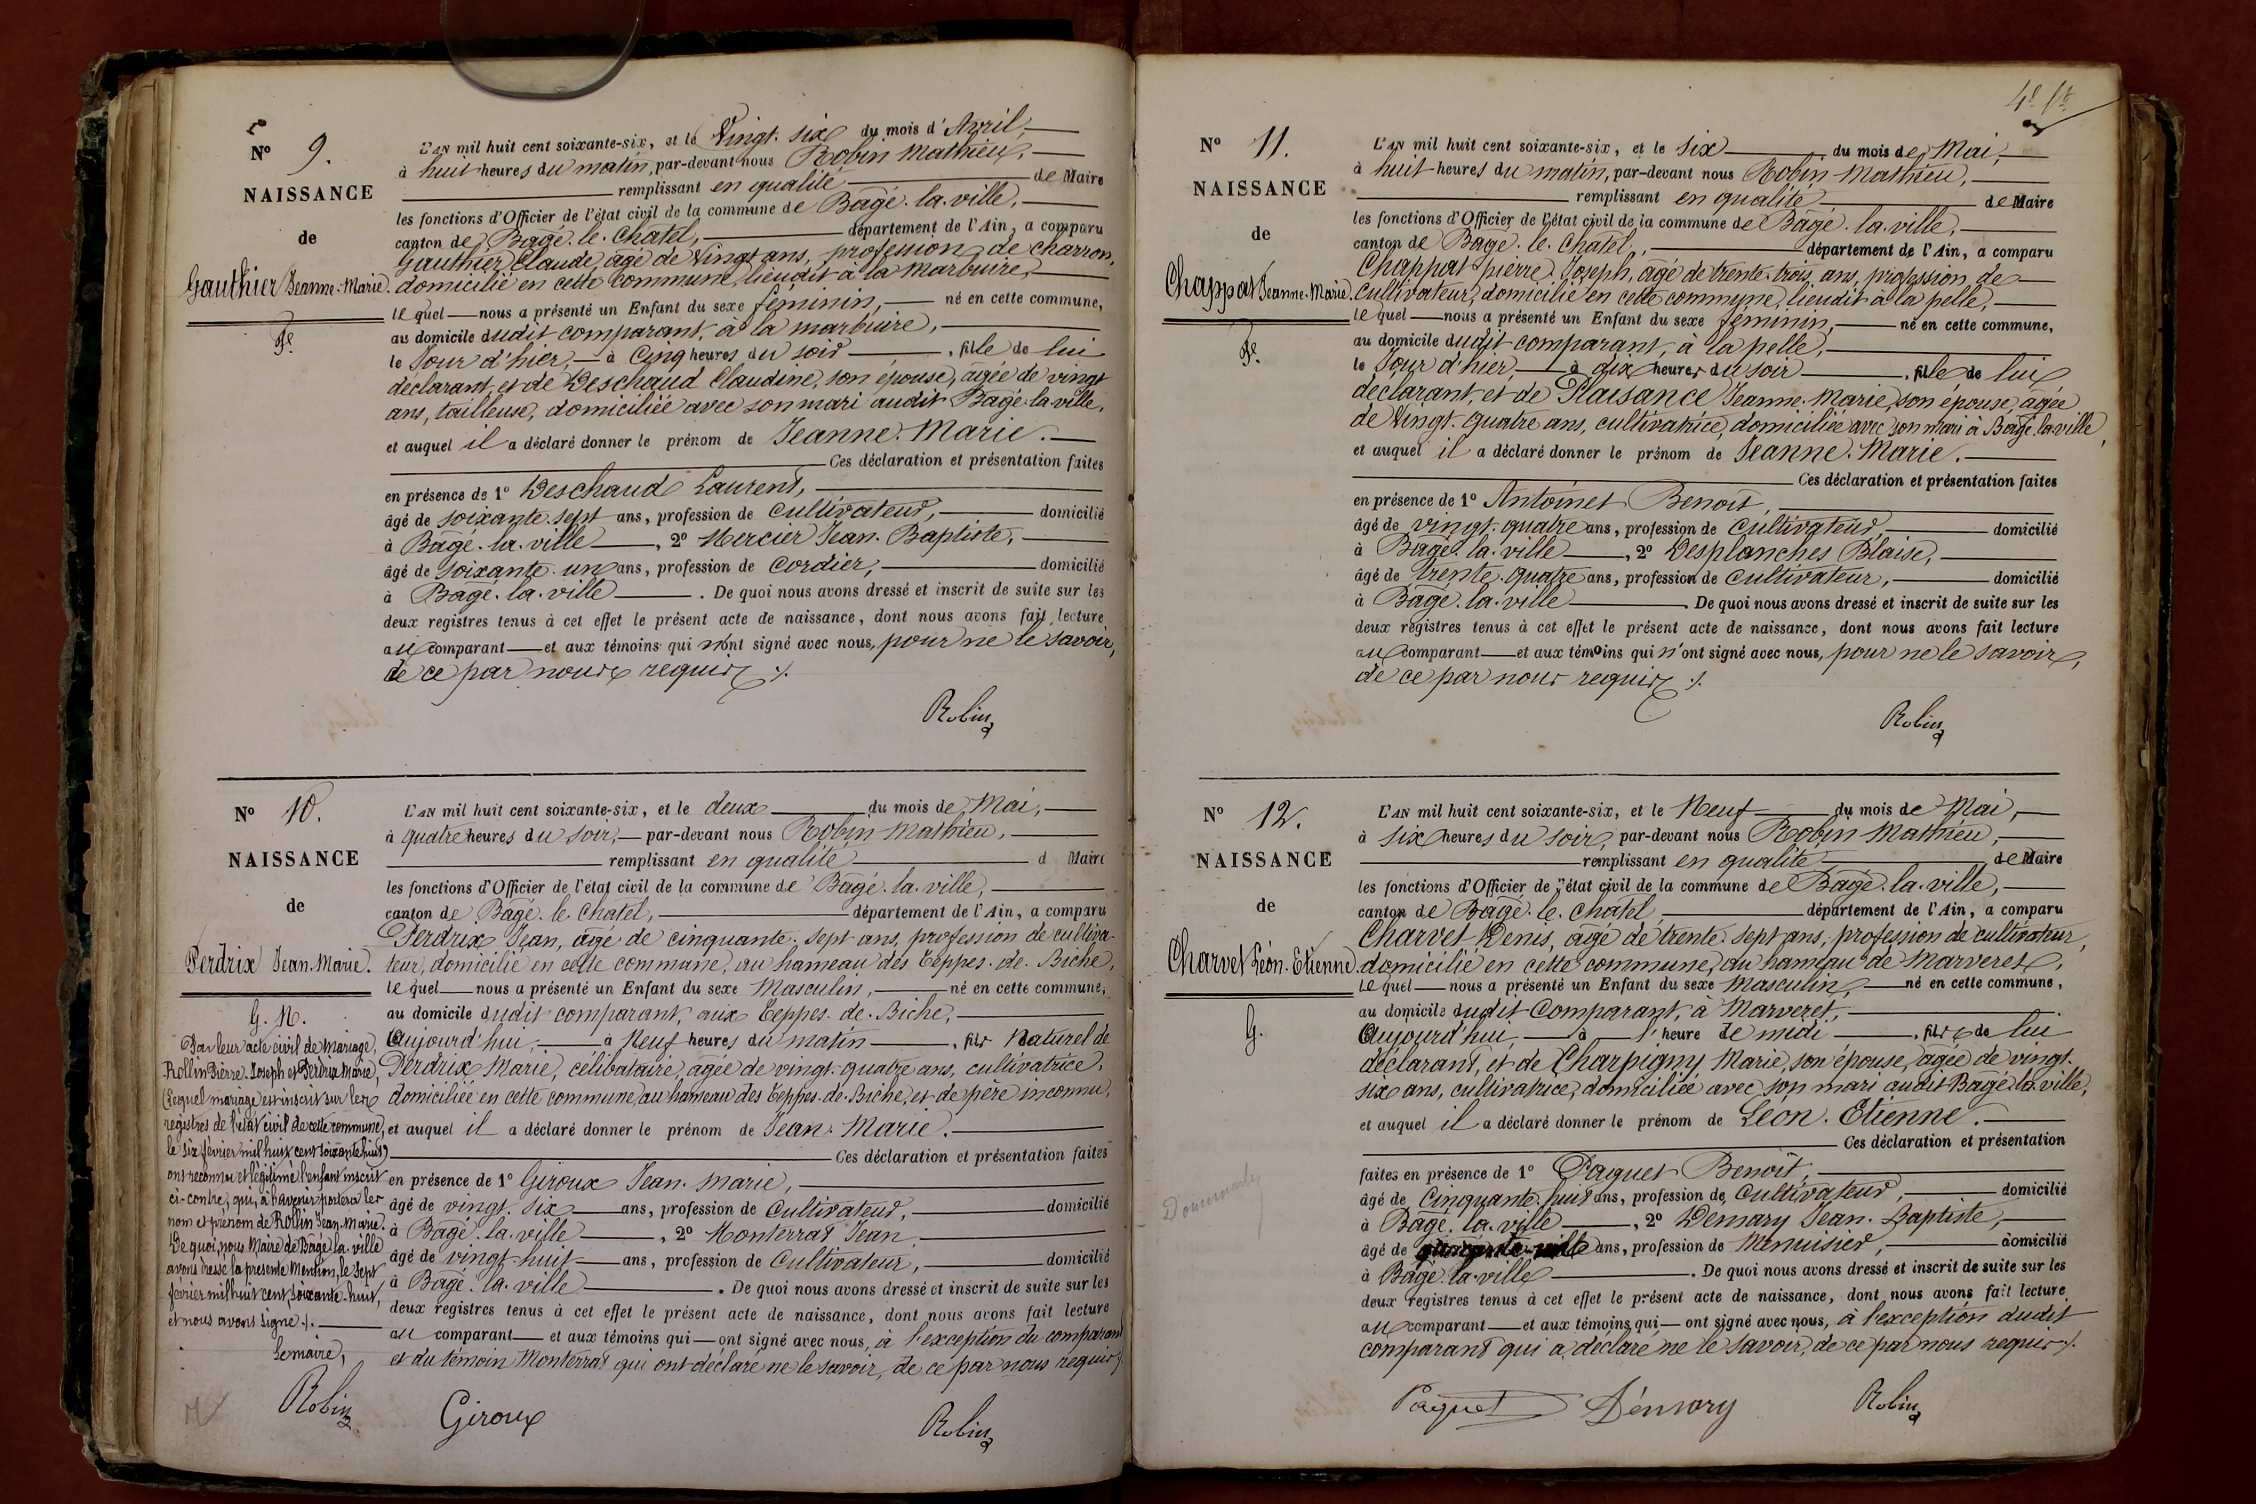 Nº 9.
NAISSANCE
de
Gauthier Jeanne-Marie.
Fe.
L'AN mil huit cent soixante-six, et le Vingt-six du mois d'Avril,
à huit heures du matin, par-devant nous Robin Mathieu,
remplissant en qualité de Maire
les fonctions d'Officier de l'état civil de la commune de Bâgé-la-ville,
canton de Bâgé-le-Chatel, département de l'Ain, a comparu
Gauthier Claude, âgé de Vingt ans, profession de charron,
domicilié en cette commune, lieudit à la Marbuire,
le quel nous a présenté un Enfant du sexe féminin, né en cette commune,
au domicile dudit comparant, à la marbuire,
le Jour d'hier, à Cinq heures du soir, fille de lui
déclarant, et de Deschaud Claudine, son épouse, âgée de vingt
ans, tailleuse, domiciliée avec son mari audit Bâgé-la-ville,
et auquel il a déclaré donner le prénom de Jeanne-Marie.
Ces déclaration et présentation faites
en présence de 1º Deschaud Laurent,
âgé de soixante-sept ans, profession de cultivateur, domicilié
à Bâgé-la-ville, 2º Mercier Jean-Baptiste,
âgé de soixante-un ans, profession de cordier, domicilié
à Bâgé-la-ville. De quoi nous avons dressé et inscrit de suite sur les
deux registres tenus à cet effet le présent acte de naissance, dont nous avons fait lecture
au comparant et aux témoins qui n'ont signé avec nous, pour ne le savoir,
de ce par nous requis ./.
Robin
Nº 10.
NAISSANCE
de
Perdrix Jean-Marie.
G. N.
Par leur acte civil de Mariage,
Rollin Pierre-Joseph et Perdrix Marie,
(lequel mariage est inscrit sur les
registres de l'état civil de cette commune,
le six février mil huit cent soixante huit)
ont reconnu et légitimé l'enfant inscrit
ci-contre, qui, à l'avenir portera les
nom et prénom de Rollin Jean-Marie.
De quoi, nous Maire de Bâgé-la-ville
avons dressé la présente Mention, le sept
février mil huit cent soixante-huit,
et nous avons signé ./.
Le maire,
Robin
L'AN mil huit cent soixante-six, et le deux du mois de Mai,
à quatre heures du soir, par-devant nous Robin Mathieu,
remplissant en qualité d Maire
les fonctions d'Officier de l'état civil de la commune de Bâgé-la-ville,
canton de Bâgé-le-Chatel, département de l'Ain, a comparu
Perdrix Jean, âgé de cinquante-sept ans, profession de cultiva-
teur, domicilié en cette commune, au hameau des Teppes-de-Biche,
le quel nous a présenté un Enfant du sexe Masculin, né en cette commune,
au domicile dudit comparant, aux Teppes-de-Biche,
Aujourd'hui, à Neuf heures du matin, fils Naturel de
Perdrix Marie, célibataire, âgée de vingt-quatre ans, cultivatrice,
domiciliée en cette commune, au hameau des Teppes-de-Biche, et de père inconnu,
et auquel il a déclaré donner le prénom de Jean-Marie.
Ces déclaration et présentation faites
en présence de 1º Giroux Jean-Marie,
âgé de vingt-six ans, profession de Cultivateur, domicilié
à Bâgé-la-ville, 2º Monterrat Jean,
âgé de vingt-huit ans, profession de Cultivateur, domicilié
à Bâgé-la-ville. De quoi nous avons dressé et inscrit de suite sur les
deux registres tenus à cet effet le présent acte de naissance, dont nous avons fait lecture
au comparant et aux témoins qui ont signé avec nous, à l'exception du comparant
et du témoin Monterrat qui ont déclaré ne le savoir, de ce par nous requis ./.
Giroux
Robin
Nº 11.
NAISSANCE
de
Chappat Jeanne-Marie.
Fe.
L'AN mil huit cent soixante-six, et le six du mois de Mai,
à huit heures du matin, par-devant nous Robin Mathieu,
remplissant en qualité de Maire
les fonctions d'Officier de l'état civil de la commune de Bâgé-la-ville,
canton de Bâgé-le-Chatel, département de l'Ain, a comparu
Chappat pierre-Joseph, âgé de trente-trois ans, profession de
cultivateur, domicilié en cette commune, lieudit à la pelle,
le quel nous a présenté un Enfant du sexe féminin, né en cette commune,
au domicile dudit comparant, à la pelle,
le Jour d'hier, à dix heures du soir, fille de lui
déclarant, et de Plaisance Jeanne-Marie, son épouse, âgée
de Vingt-quatre ans, cultivatrice, domiciliée avec son mari à Bâgé-la-ville,
et auquel il a déclaré donner le prénom de Jeanne-Marie.
Ces déclaration et présentation faites
en présence de 1º Antoinet Benoit,
âgé de vingt-quatre ans, profession de Cultivateur, domicilié
à Bâgé-la-ville, 2º Desplanches Blaise,
âgé de trente-quatre ans, profession de Cultivateur, domicilié
à Bâgé-la-ville. De quoi nous avons dressé et inscrit de suite sur les
deux registres tenus à cet effet le présent acte de naissance, dont nous avons fait lecture
au comparant et aux témoins qui n'ont signé avec nous, pour ne le savoir,
de ce par nous requis ./.
Robin
Nº 12.
NAISSANCE
de
Charvet Léon-Etienne.
G.
L'AN mil huit cent soixante-six, et le Neuf du mois de Mai,
à six heures du soir, par-devant nous Robin Mathieu,
remplissant en qualité de Maire
les fonctions d'Officier de l'état civil de la commune de Bâgé-la-ville,
canton de Bâgé-le-Chatel, département de l'Ain, a comparu
Charvet Denis, âgé de trente-sept ans, profession de cultivateur,
domicilié en cette commune, au hameau de Marveret,
le quel nous a présenté un Enfant du sexe masculin, né en cette commune,
au domicile dudit Comparant, à Marveret,
Aujourd'hui, à l'heure de midi, fils de lui
déclarant, et de Charpigny Marie, son épouse, âgée de vingt-
six ans, cultivatrice, domiciliée avec son mari audit Bâgé-la-ville,
et auquel il a déclaré donner le prénom de Léon-Etienne.
Ces déclaration et présentation
faites en présence de 1º Paquet Benoît,
âgé de Cinquante-huit ans, profession de Cultivateur, domicilié
à Bâgé-la-ville, 2º Demary Jean-Baptiste,
âgé de ans, profession de Menuisier, domicilié
à Bâgé-la-ville. De quoi nous avons dressé et inscrit de suite sur les
deux registres tenus à cet effet le présent acte de naissance, dont nous avons fait lecture
au comparant et aux témoins qui ont signé avec nous, à l'exception dudit
comparant qui a déclaré ne le savoir, de ce par nous requis ./.
Paquet Démary
Robin